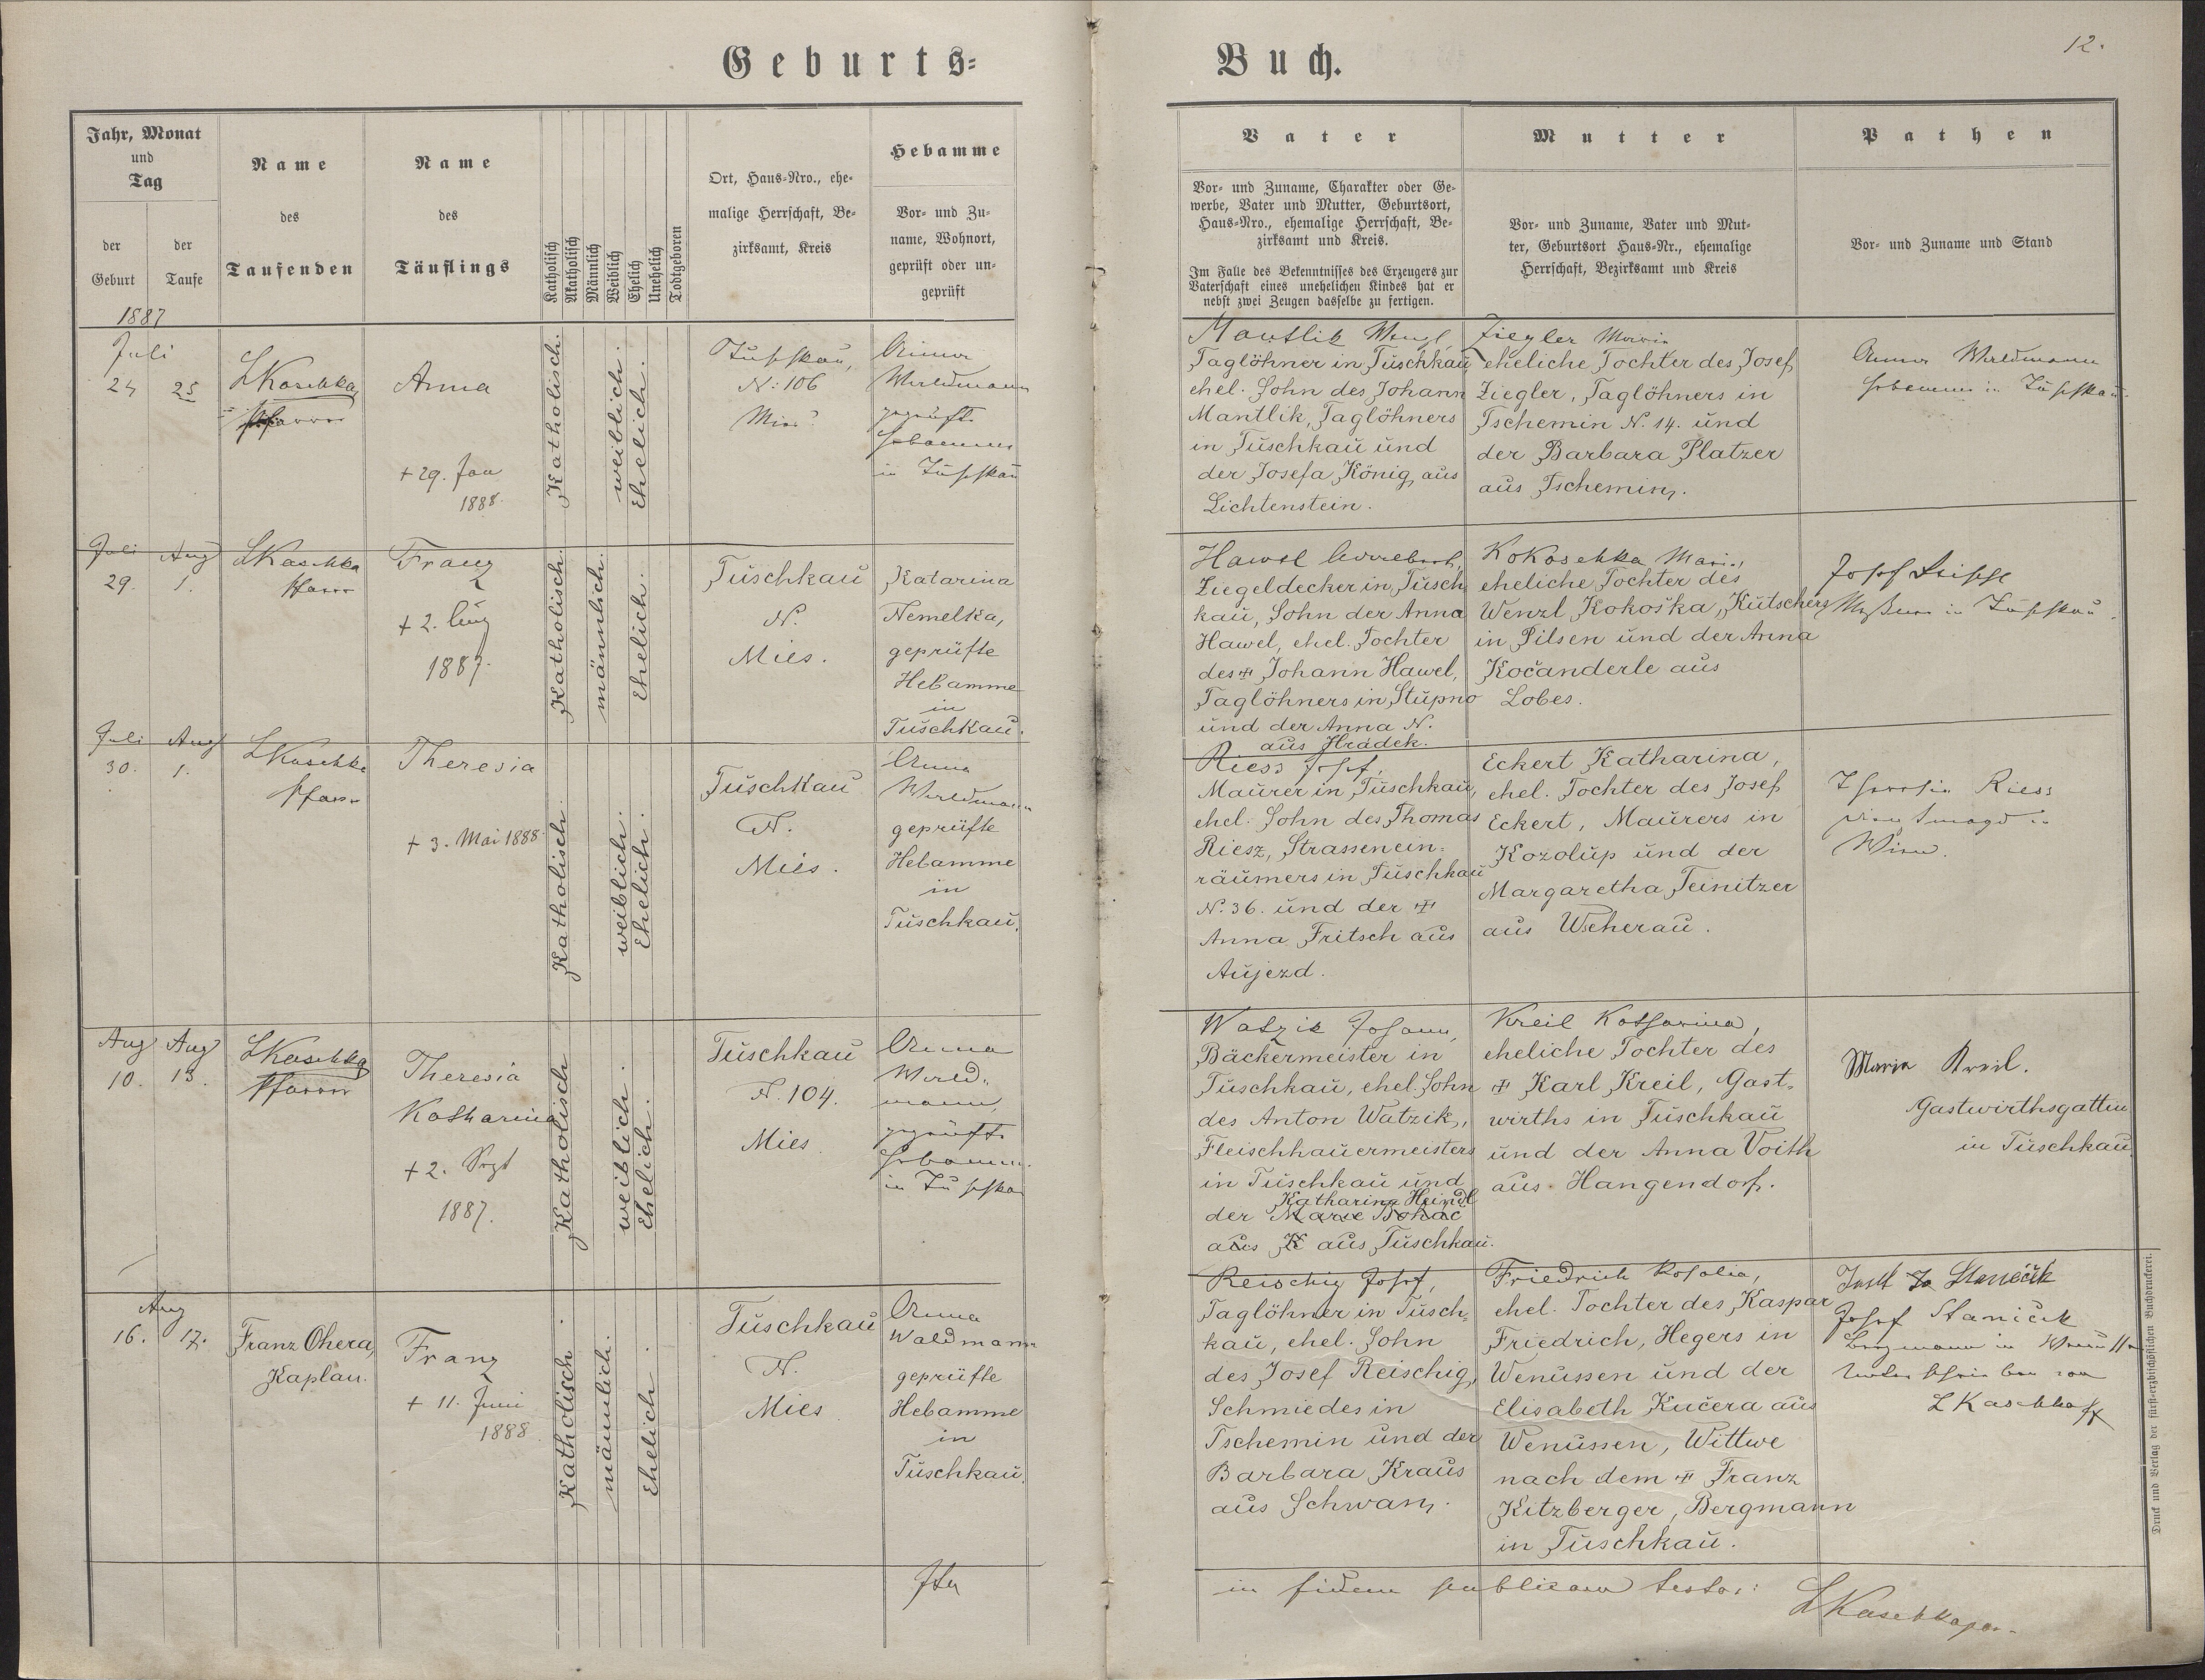 Geburts-
Buch.
12.
Jahr, Monat
und
Tag
der
Geburt
der
Taufe
Name
des
Taufenden
Name
des
Täuflings
Katholisch
Akatholisch
Männlich
Weiblich
Ehelich
Unehelich
Todtgeboren
Ort, Haus-Nro., ehe-
malige Herrschaft, Be-
zirksamt, Kreis
Hebamme
Vor- und Zu-
name, Wohnort,
geprüft oder un-
geprüft
Vater
Vor- und Zuname, Charakter oder Ge-
werbe, Vater und Mutter, Geburtsort,
Haus-Nro., ehemalige Herrschaft, Be-
zirksamt und Kreis.
Im Falle des Bekenntnisses des Erzeugers zur
Vaterschaft eines unehelichen Kindes hat er
nebst zwei Zeugen dasselbe zu fertigen.
Mutter
Vor- und Zuname, Vater und Mut-
ter, Geburtsort Haus-Nr., ehemalige
Herrschaft, Bezirksamt und Kreis
Pathen
Vor- und Zuname und Stand
1887
Juli
24 25
LKaschka
Pfarrer
Anna
+ 29. Jan
1888.
Katholisch.
weiblich.
Ehelich.
Tuschkau,
N: 106
Mies
Anna
Waldmann
geprüfte
Hebamme
in Tuschkau
Mantlik Wenzl,
Taglöhner in Tuschkau,
ehel. Sohn des Johann
Mantlik, Taglöhners
in Tuschkau und
der Josefa König, aus
Lichtenstein.
Ziegler Maria
eheliche Tochter des Josef
Ziegler, Taglöhners in
Tschemin N. 14. und
der Barbara Platzer
aus Tschemin.
Anna Waldmann
Hebamme in Tuschkau.
Juli Aug
29. 1.
LKaschka
Pfarrer
Franz
+ 2. Aug
1887.
Katholisch.
männlich.
Ehelich.
Tuschkau
N.
Mies.
Katarina
Nemelka,
geprüfte
Hebamme
in
Tuschkau.
Hawel
Ziegeldecker in Tusch
kau, Sohn der Anna
Hawel, ehel. Tochter
des + Johann Hawel,
Taglöhners in Stupno
und der Anna N.
aus Hradek.
Kokoschka Maria,
eheliche Tochter des
Wenzl Kokoška, Kutschers
in Pilsen und der Anna
Kočanderle aus
Lobes.
Josef
in Tuschkau.
Juli Aug
30. 1.
LKaschka
Pfarr
Theresia
+ 3. Mai 1888
Katholisch.
weiblich.
Ehelich.
Tuschkau
N.
Mies.
Anna
Waldmann
geprüfte
Hebamme
in
Tuschkau.
Riess Josef,
Maurer in Tuschkau,
ehel. Sohn des Thomas
Riesz, Strassenein-
räumers in Tuschkau
N. 36. und der +
Anna Fritsch aus
Aujezd.
Eckert Katharina,
ehel. Tochter des Josef
Eckert, Maurers in
Kozolup und der
Margaretha Teinitzer
aus Wscherau.
Theresia Riess
Dienstmagd in
Wien.
Aug Aug
10. 13.
LKaschka
Pfarrer
Theresia
Katharina
+ 2. Sept
1887.
Katholisch
weiblich.
Ehelich.
Tuschkau
N. 104.
Mies
Anna
Wald-
mann,
geprüfte
Hebamme
in Tuschkau
Watzik Johann,
Bäckermeister in
Tuschkau, ehel. Sohn
des Anton Watzik,
Fleischhauermeisters
in Tuschkau und
Katharina Heindl
der Marie Bohac
aus K aus Tuschkau.
Kreil Katharina,
eheliche Tochter des
+ Karl Kreil, Gast-
wirths in Tuschkau
und der Anna Voith
aus Hangendorf.
Maria Kreil.
Gastwirthsgattin
in Tuschkau.
Aug
16. 17.
Franz Ohera,
Kaplan.
Franz
+ 11. Juni
1888
Katholisch.
männlich.
Ehelich.
Tuschkau
N.
Mies
Anna
Waldmann
geprüfte
Hebamme
in
Tuschkau.
Reischig Josef,
Taglöhner in Tusch-
kau, ehel. Sohn
des Josef Reischig,
Schmiedes in
Tschemin und der
Barbara Kraus
aus Schwam.
Friedrich Rosalia,
ehel. Tochter des Kaspar
Friedrich, Hegers in
Wenussen und der
Elisabeth Kučera aus
Wenussen, Wittwe
nach dem + Franz
Kitzberger, Bergmann
in Tuschkau.
Josef Staniček
Bergmann in
Unterschrieben von
LKaschka
in fidem publicam testor:
LKaschka
Druck und Verlag der fürst-erzbischöflichen Buchdruckerei.